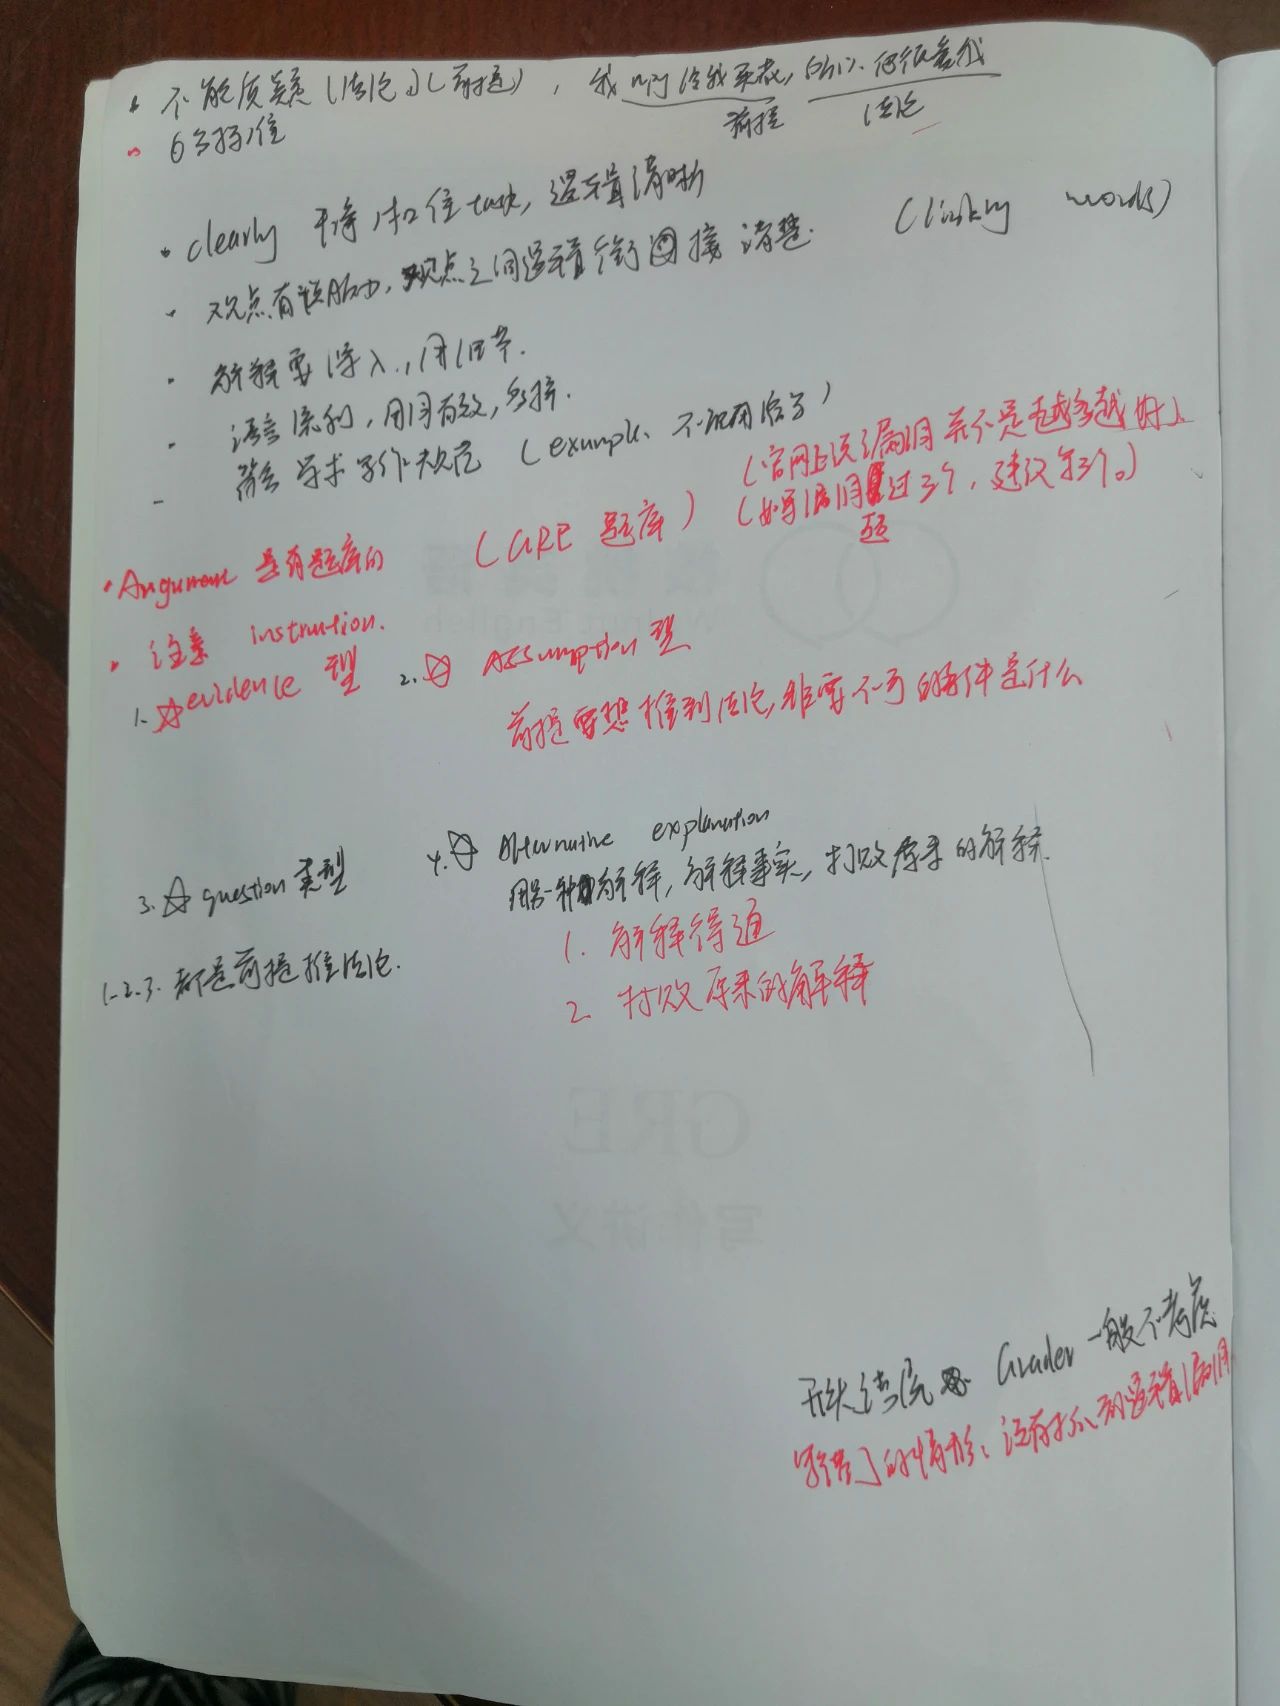 不能质疑(结论)(前提),我 给我买花,所以 他很喜欢我
前提 结论
6分标准
clearly 干净 扣住task,逻辑清晰
观点有 ,观点之间逻辑衔接清楚. (linking words)
解释要深入,用细节.
语言流利,用词有效,多样.
符合学术写作规范 (example、不许用缩写)
Argument 是有题库的 (GRE 题库) (官网上说漏洞并不是越多越好)
(如果漏洞超过三个,建议写3个。)
注意 instruction.
1. ☆evidence 型 2. ☆ Assumption 型
前提要想推到结论,非要不可的条件是什么
3. ☆ question 类型 4. ☆ Alternative explanation
用另一种解释,解释事实,打败原来的解释.
1. 解释得通
1.2.3. 都是前提推结论.
2. 打败原来的解释
GRE
写作讲义
开头结尾 Grader 一般不考虑
写错了的情形:没有抓到逻辑漏洞